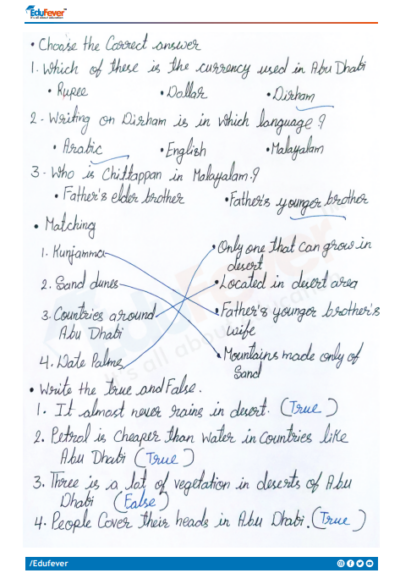 EduFever
• Choose the Correct answer
1. Which of these is the currency used in Abu Dhabi
• Rupee • Dollar • Dirham
2 - Writing on Dirham is in which language?
• Arabic • English • Malayalam
3 - Who is Chittappan in Malayalam?
• Father's elder brother • Father's younger brother
• Matching
1. Kunjamma • Only one that can grow in desert
2. Sand dunes • Located in desert area
3. Countries around Abu Dhabi • Father's younger brother's wife
4. Date Palms • Mountains made only of Sand
• Write the true and False.
1. It almost never rains in desert. (True)
2. Petrol is cheaper than water in countries like
Abu Dhabi (True)
3. Three is a lot of vegetation in deserts of Abu
Dhabi (False)
4. People Cover their heads in Abu Dhabi. (True)
/Edufever